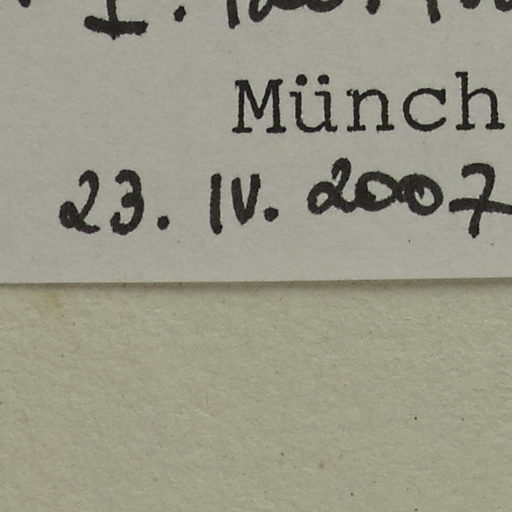 Münch
23. IV. 2007